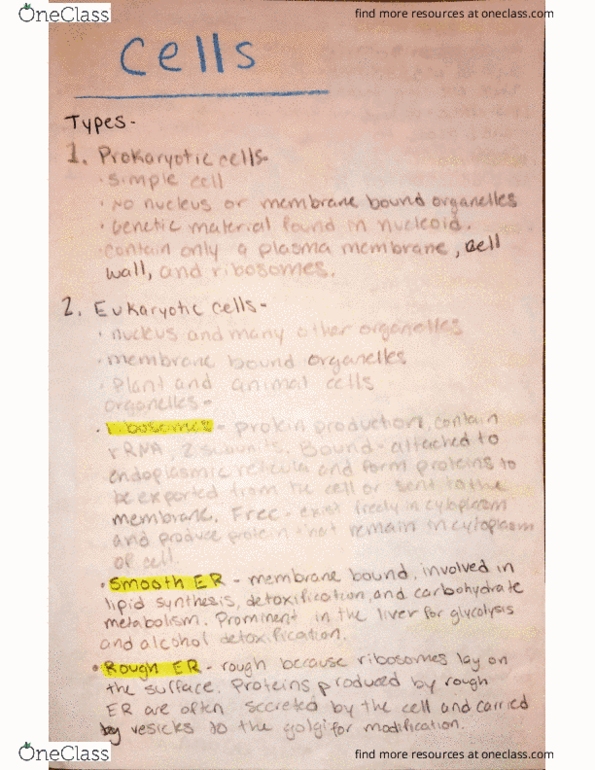 OneClass
find more resources at oneclass.com
Cells
Types-
1. Prokaryotic cells-
• simple cell
• No nucleus or membrane bound organelles
• Genetic material found in nucleoid.
• contain only a plasma membrane, cell
wall, and ribosomes.
2. Eukaryotic cells-
• nucleus and many other organelles
• membrane bound organelles
• Plant and animal cells
organelles-
• ribosomes - protein production, contain
rRNA, 2 subunits. Bound - attached to
endoplasmic reticula and form proteins to
be exported from the cell or sent to the
membrane. Free - exist freely in cytoplasm
and produce protein that remain in cytoplasm
of cell.
• Smooth ER - membrane bound, involved in
lipid synthesis, detoxification, and carbohydrate
metabolism. Prominent in the liver for glycolysis
and alcohol detoxification.
• Rough ER - rough because ribosomes lay on
the surface. Proteins produced by rough
ER are often secreted by the cell and carried
by vesicles to the golgi for modification.
OneClass
find more resources at oneclass.com